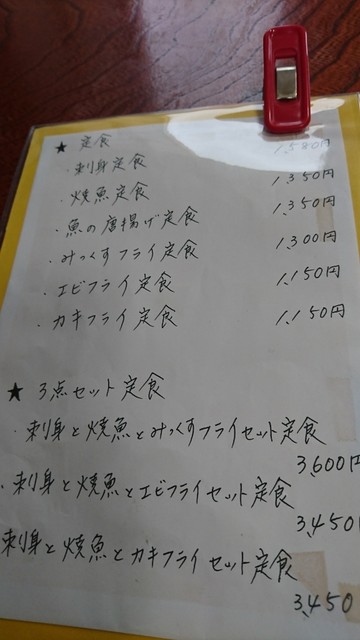 ★ 定食
・刺身定食 1,580円
・焼魚定食 1,350円
・魚の唐揚げ定食 1,350円
・みっくすフライ定食 1,300円
・エビフライ定食 1,150円
・カキフライ定食 1,150円
★ 3点セット定食
・刺身と焼魚とみっくすフライセット定食
3,600円
・刺身と焼魚とエビフライセット定食
3,450
刺身と焼魚とカキフライセット定食
3,450